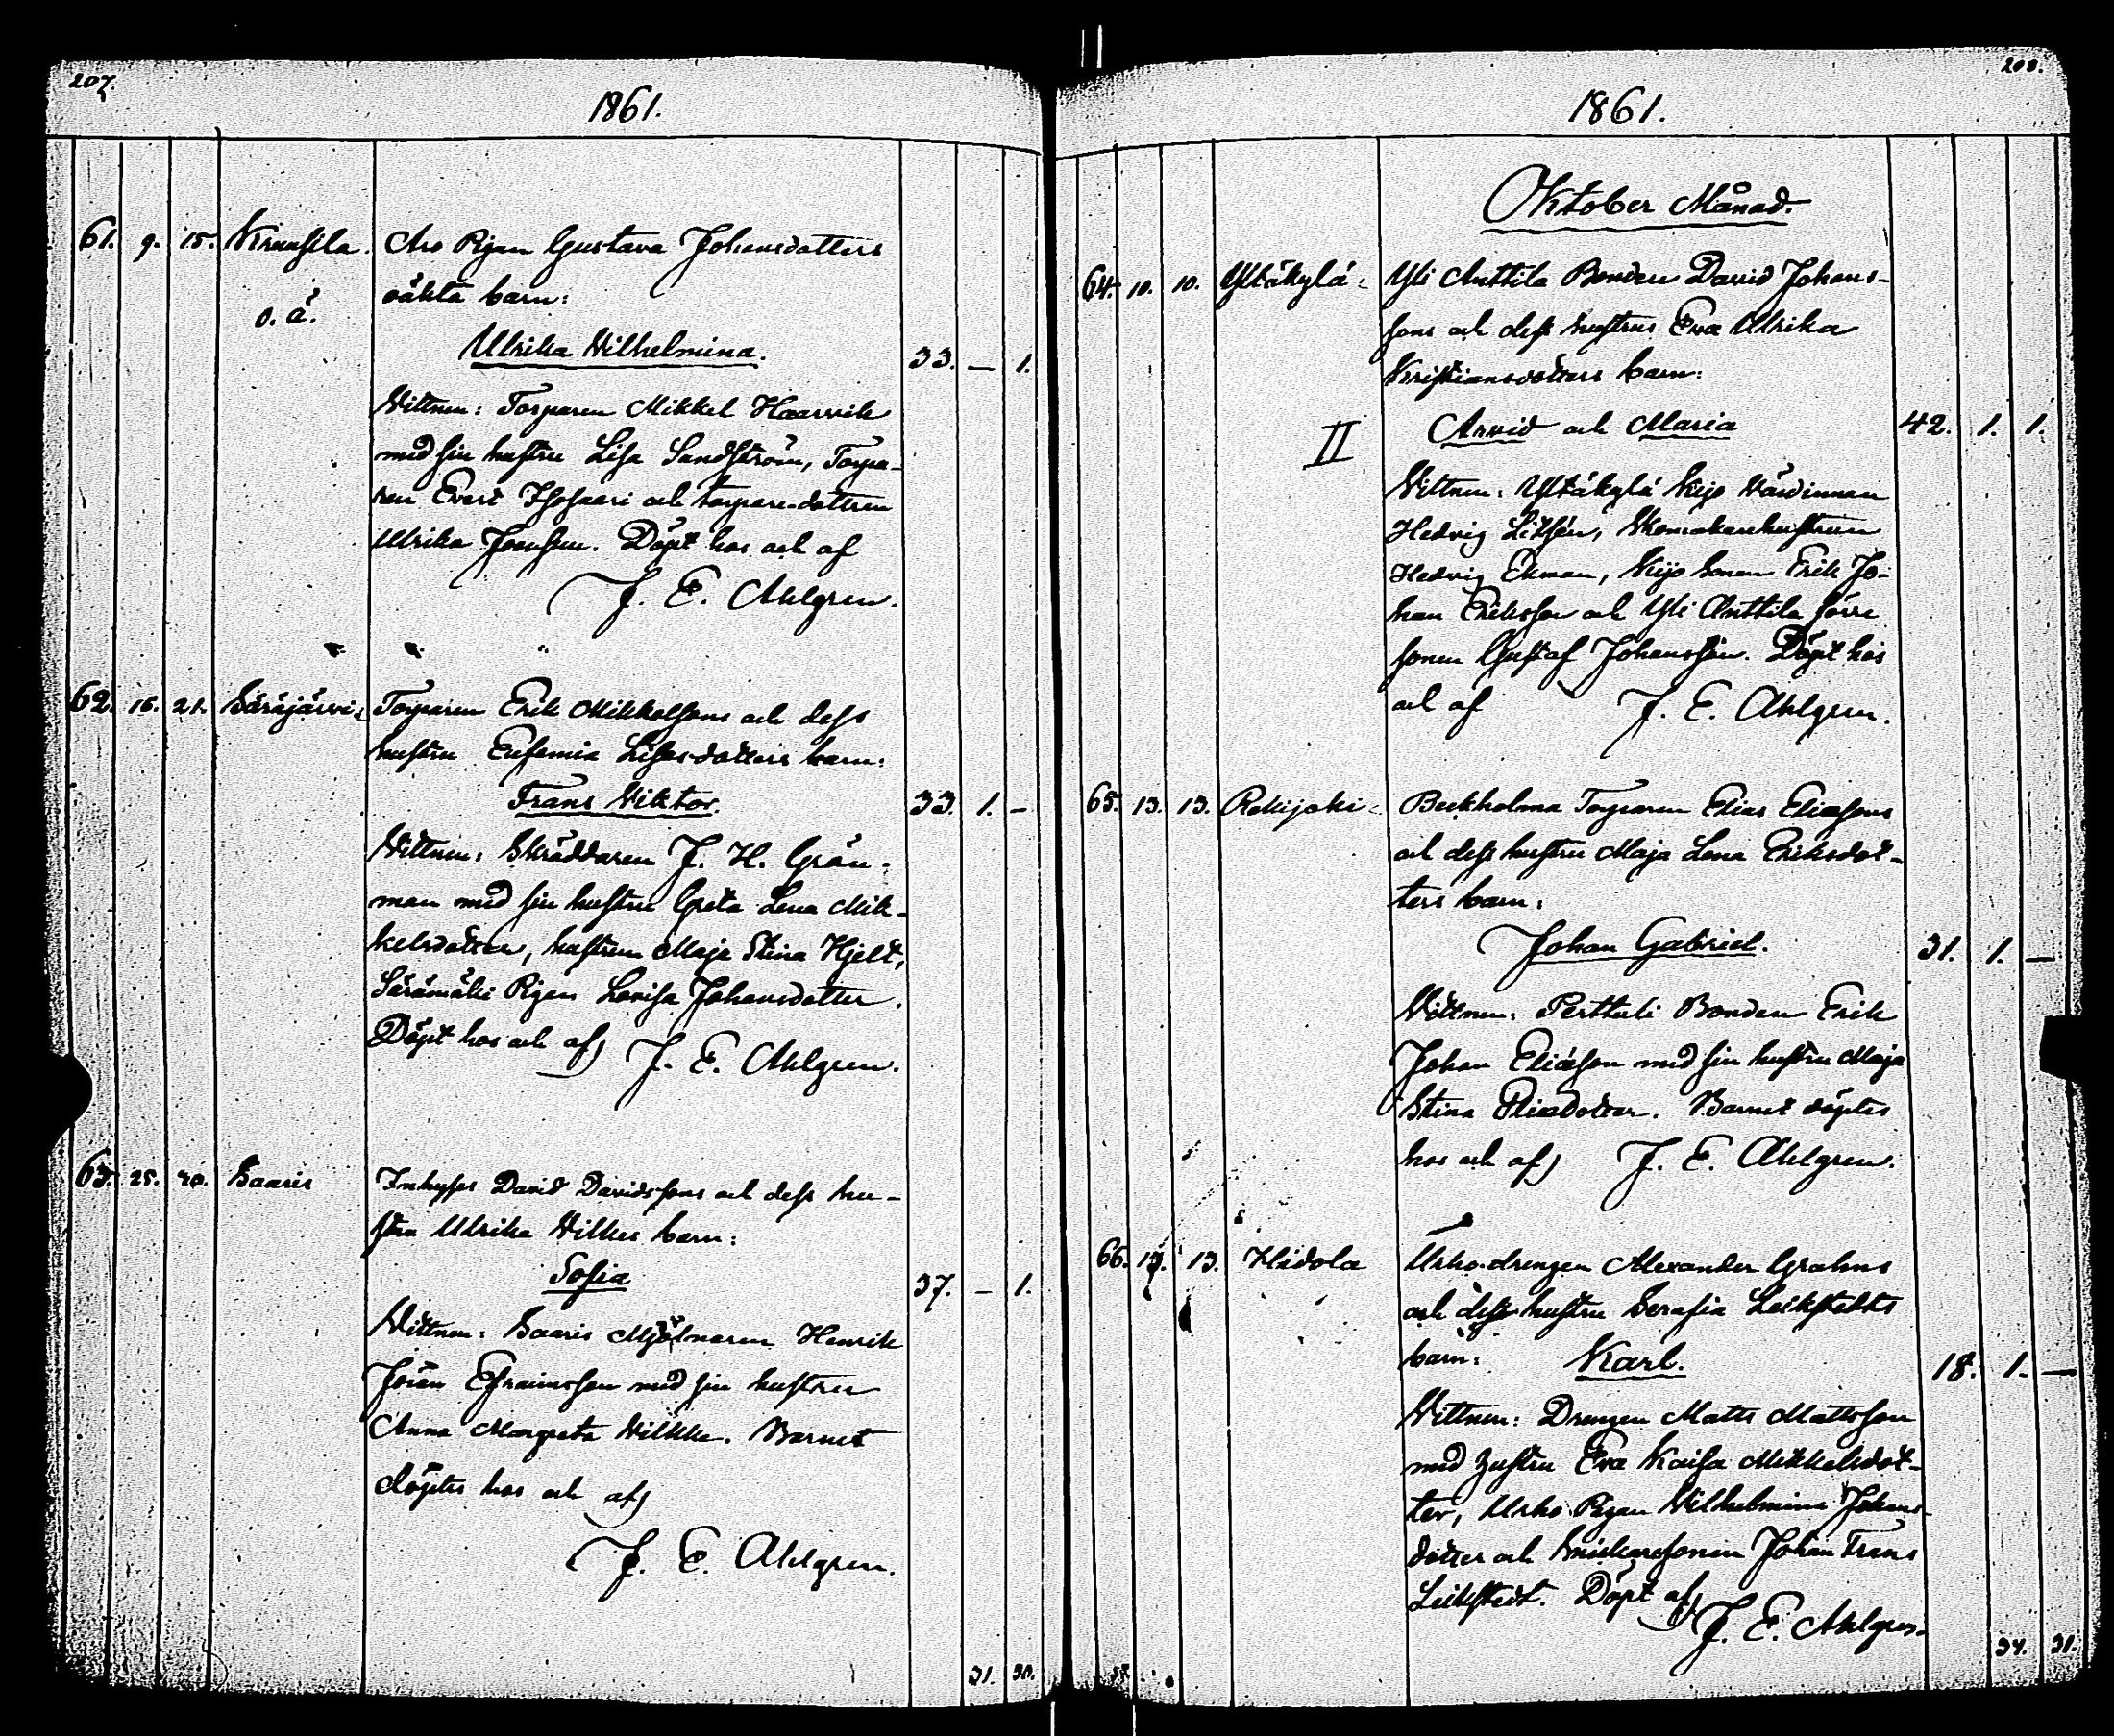 207.
1861.
61. 9. 15. Kruusila. Aro Pigan Gustava Johansdotters
o. ä. oäkta barn:
Ulrika Wilhelmina. 33. — 1.
Wittnen: Torparen Mikkel Haarvik
med sin hustru Lisa Sandström, Torpa-
ren Evert Isosaari och torpare-dottren
Ulrika Joensuu. Döpt hos och af
J. E. Ahlgren.
62. 16. 21. Säräjärvi: Torparen Erik Mikkelsons och dess
hustru Eufemia Lisas-dotters barn:
Frans Viktor. 33. 1. –
Wittnen: Skräddaren J. H. Grön-
man med sin hustru Greta Lena Mik-
kelsdotter, hustrun Maja Stina Hjelt,
Särämäki Pigan Lovisa Johansdotter.
Döpt hos och af J. E. Ahlgren.
63. 25. 30. Saaris Inhyses David Davidssons och dess hu-
stru Ulrika Wilkes barn:
Sofia 37. – 1.
Wittnen: Saaris Mjölnaren Henrik
Efraimsson med sin hustru
Anna Margreta Wilkke. Barnet
döptes hos och af
J. E. Ahlgren.
31. 30.
208.
1861.
Oktober Månad.
64. 10. 10. Yltäkylä: Yli Anttila Bonden David Johans-
sons och dess hustrus Eva Ulrika
Kristiansdotters barn:
II Arvid och Maria 42. 1. 1.
Wittnen: Yltäkylä Keijo Wärdinnan
Hedvig Litsén, Skomakarehustrun
Hedvig Ekman, Keijo Sonen Erik Jo-
han Eriksson och Yli Anttila förre
sonen Gustaf Johansson. Döpt hos
och af J. E. Ahlgren.
65. 13. 13. Rekijoki: Beckholma Torparen Elias Eliassons
och dess hustru Maja Lena Eriksdot-
ters barn:
Johan Gabriel. 31. 1. —
Wittnen: Perttuli Bonden Erik
Johan Eliasson med sin hustru Maja
Stina Eliasdotter. Barnet döptes
hos och af J. E. Ahlgren.
66. 13. 13. Hidola Urho-drengen Alexander Grahns
och dess hustru Serafia Leikstedts
barn: Karl. 18. 1. —
Wittnen: Drengen Matts Mattsson
med hustru Eva Kaisa Mikkelsdot-
ter, Urho Pigan Wilhelmina Johans-
dotter och Snickaresonen Johan Frans
Leikstedt. Döpt af
J. E. Ahlgren.
34. 31.